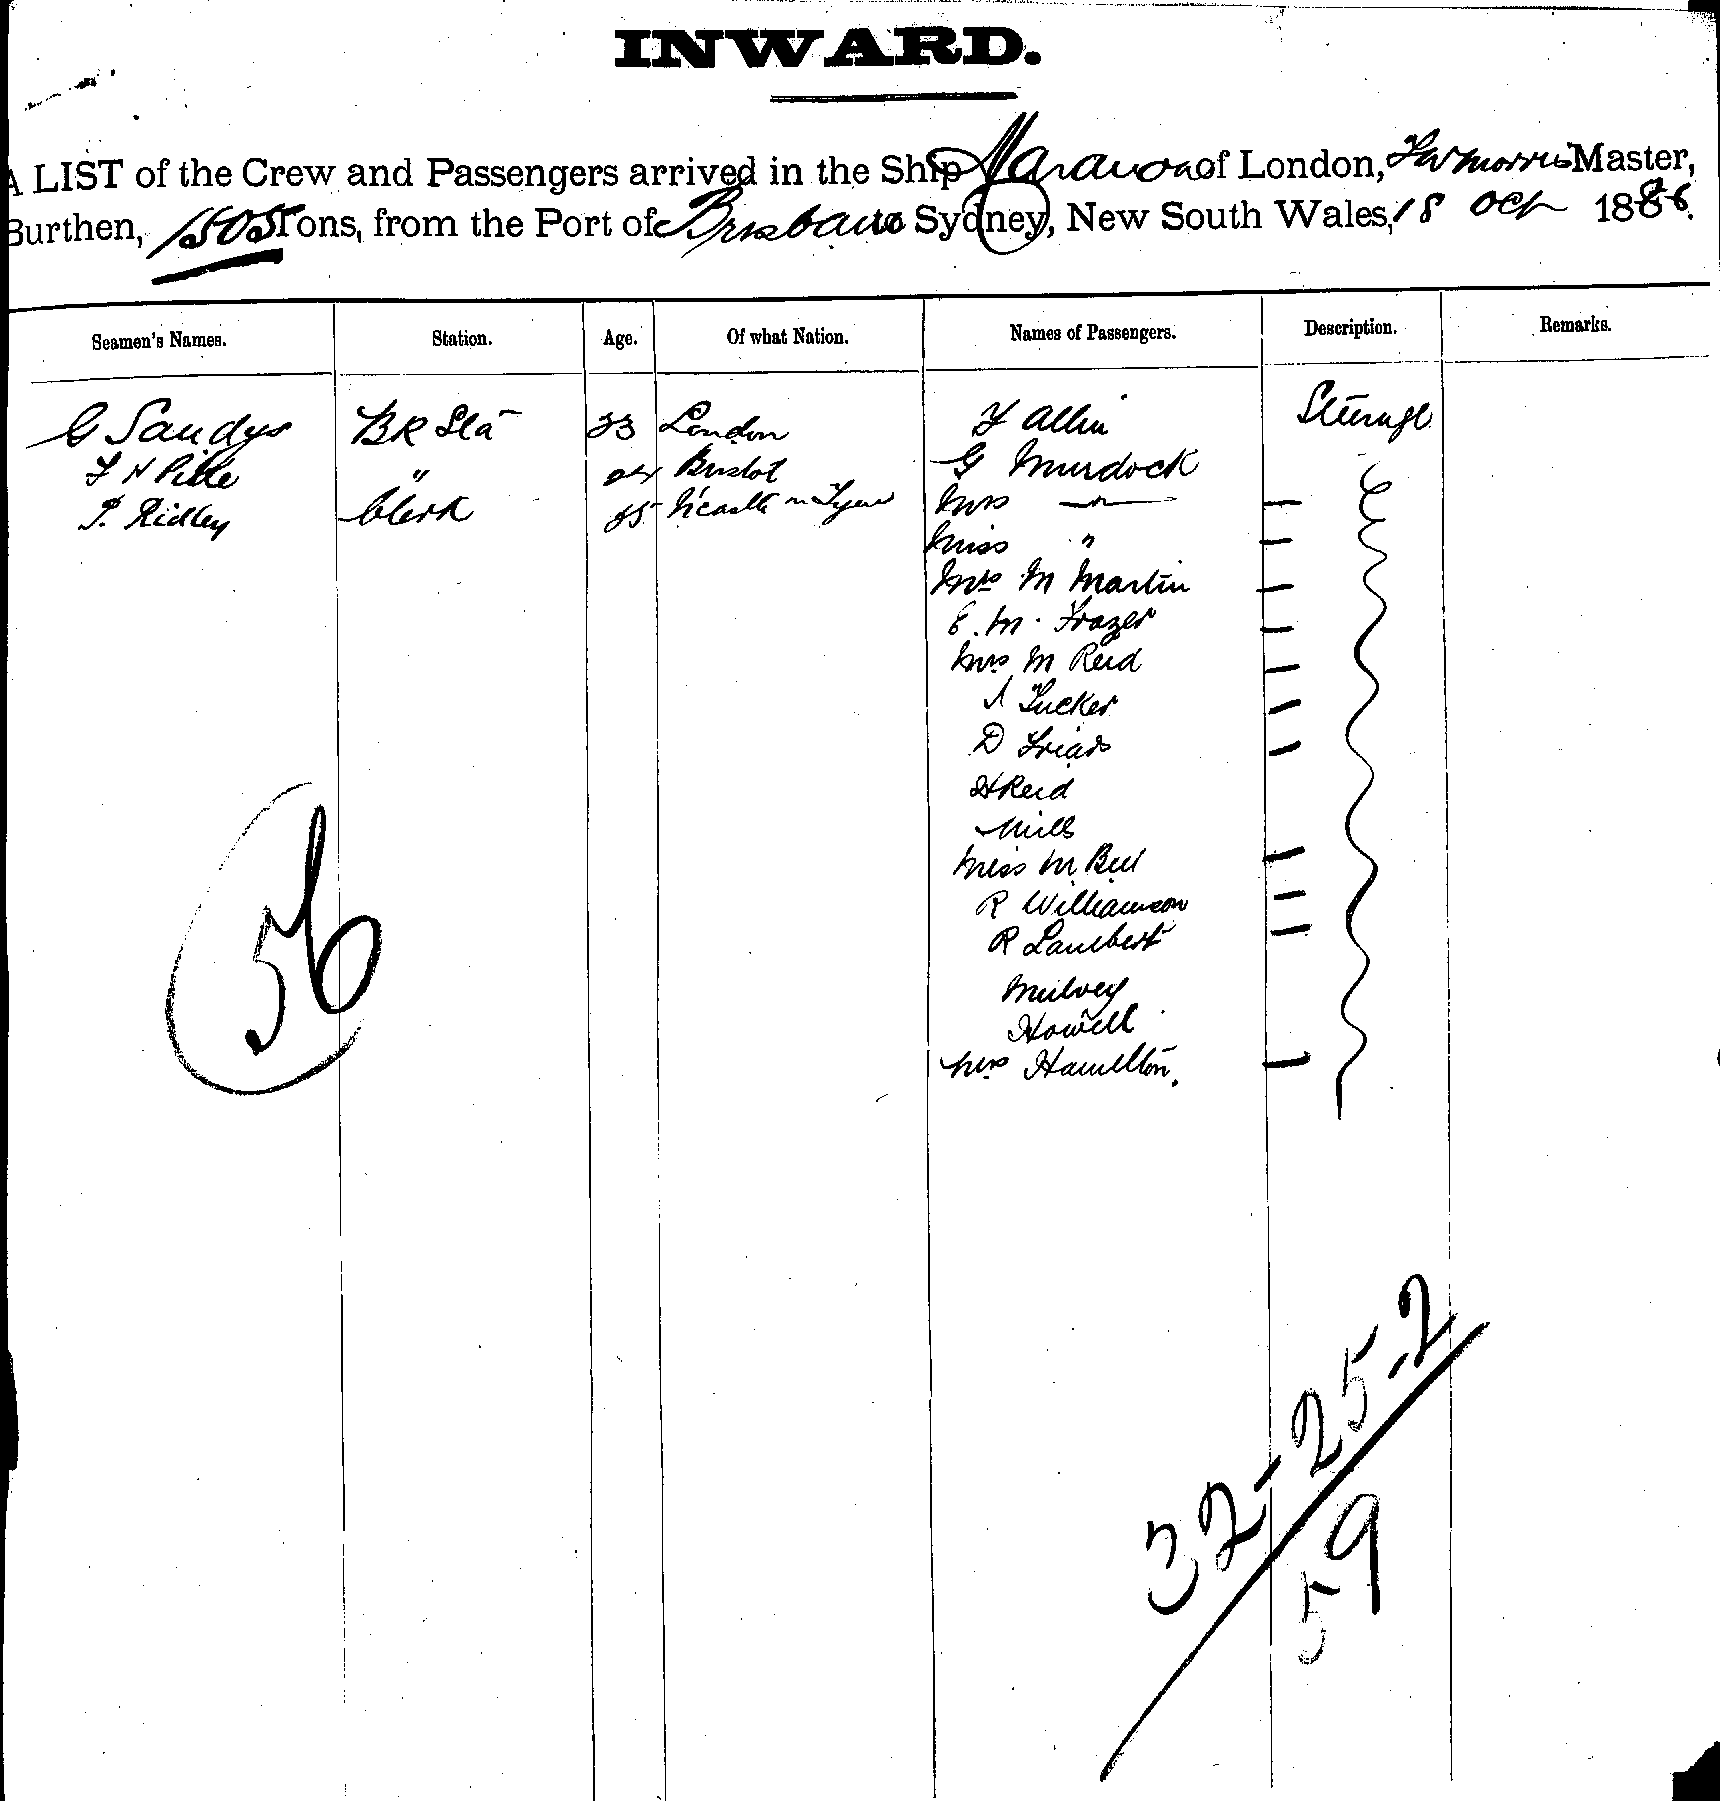 INWARD.
A LIST of the Crew and Passengers arrived in the Ship Maranoa of London, F W Morris Master,
Burthen, 1505 Tons, from the Port of Brisbane Sydney, New South Wales, 18 Oct 1886.
Seamen's Names. Station. Age. Of what Nation. Names of Passengers. Description. Remarks.
G Sandys BR Sta 33 London F Allin Steerage
F N Pike " Bristol G Murdock
P. Ridley Clerk 35 N'castle on Tyne Mrs — " —
Miss "
Mrs M Martin
E. M. Frazer
Mrs M Reid
A Tucker
D Friar
H Reid
Mills
Miss M Bell
R Williamson
R Lambert
Mulvey
Howell
Mrs Hamilton.
56
32-25-2
59